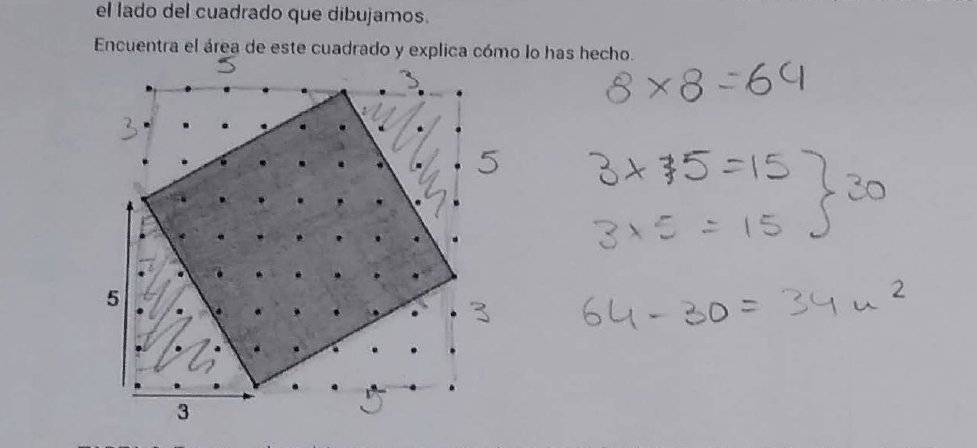 el lado del cuadrado que dibujamos.
Encuentra el área de este cuadrado y explica cómo lo has hecho.
5
3
3
5
5
3
3
5
8 × 8 = 64
3 × 5 = 15
3 × 5 = 15
} 30
64 - 30 = 34 u²